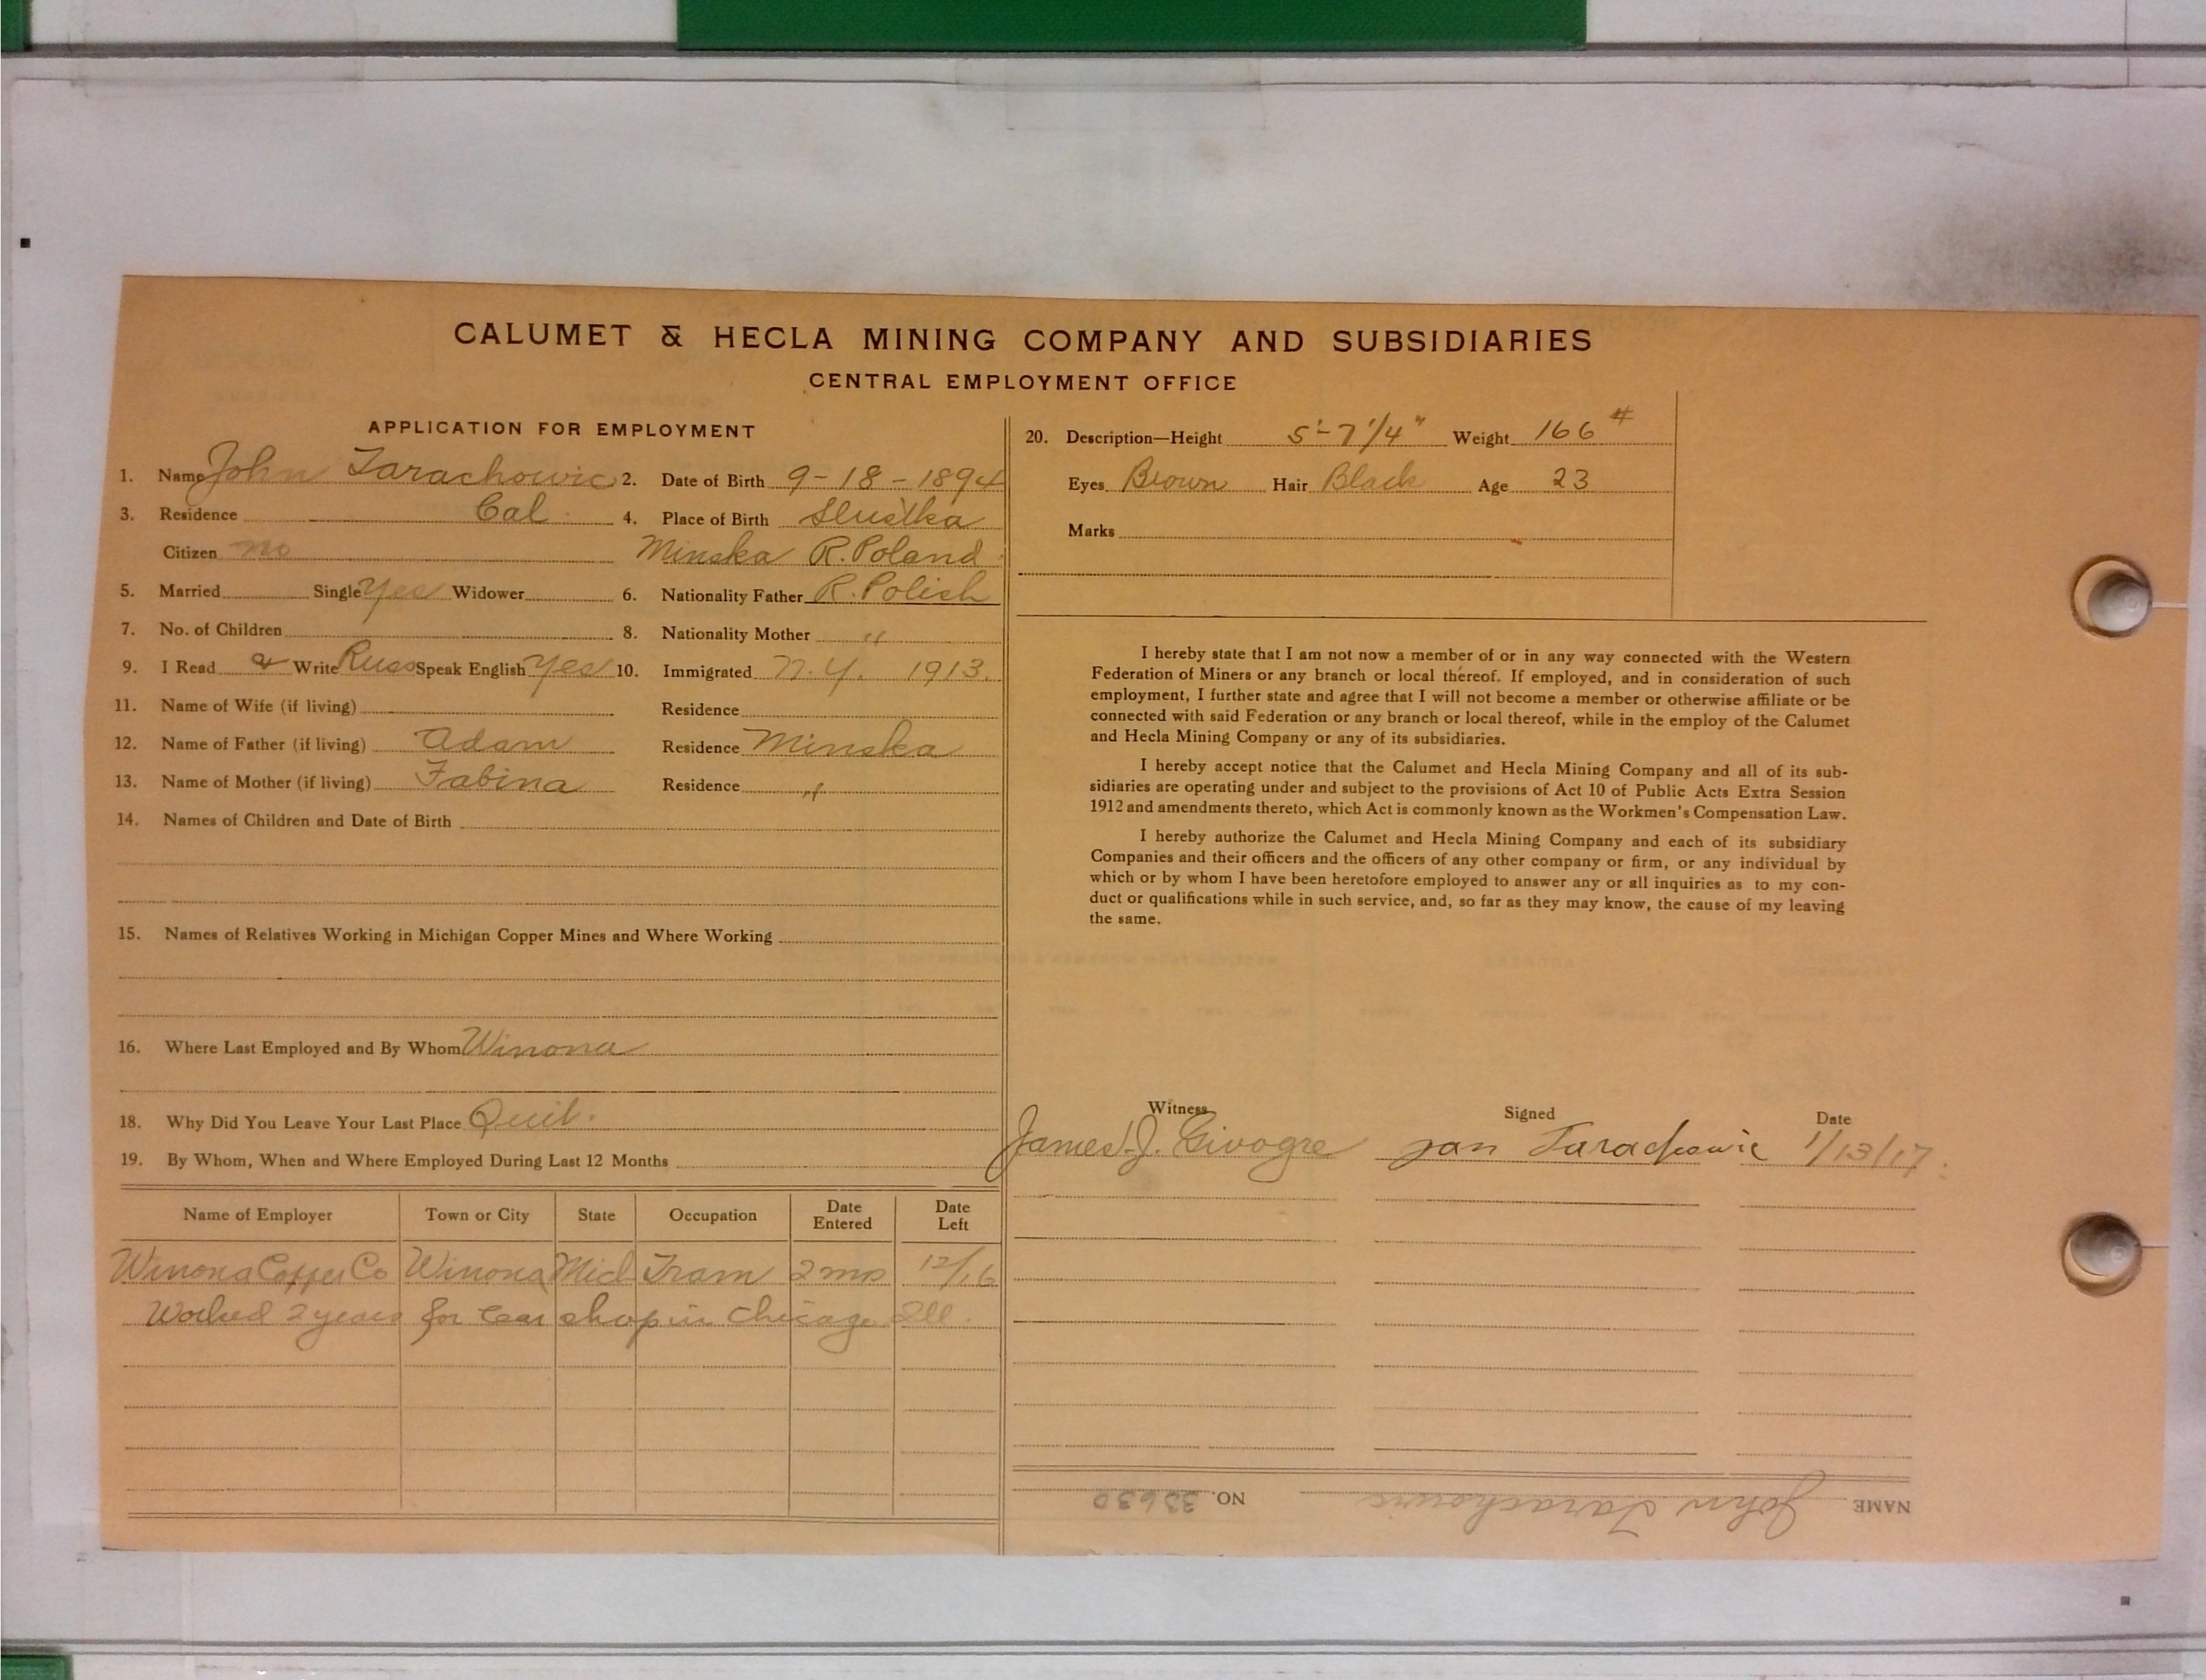 CALUMET & HECLA MINING COMPANY AND SUBSIDIARIES
CENTRAL EMPLOYMENT OFFICE
APPLICATION FOR EMPLOYMENT
1. Name John Tarachowic 2. Date of Birth 9-18-1894
3. Residence Cal 4. Place of Birth Slustka
Citizen no Minska R. Poland
5. Married Single Yes Widower 6. Nationality Father R. Polish
7. No. of Children 8. Nationality Mother "
9. I Read & Write Russ Speak English Yes 10. Immigrated N.Y. 1913.
11. Name of Wife (if living) Residence
12. Name of Father (if living) Adam Residence Minska
13. Name of Mother (if living) Fabina Residence "
14. Names of Children and Date of Birth
15. Names of Relatives Working in Michigan Copper Mines and Where Working
16. Where Last Employed and By Whom Winona
18. Why Did You Leave Your Last Place Quit.
19. By Whom, When and Where Employed During Last 12 Months
Name of Employer Town or City State Occupation Date Entered Date Left
Winona Copper Co Winona Mich Tram 2 mos 12/16
Worked 2 years for Car shop in Chicago Ill.
20. Description—Height 5'-7 1/4" Weight 166 #
Eyes Brown Hair Black Age 23
Marks
I hereby state that I am not now a member of or in any way connected with the Western
Federation of Miners or any branch or local thereof. If employed, and in consideration of such
employment, I further state and agree that I will not become a member or otherwise affiliate or be
connected with said Federation or any branch or local thereof, while in the employ of the Calumet
and Hecla Mining Company or any of its subsidiaries.
I hereby accept notice that the Calumet and Hecla Mining Company and all of its sub-
sidiaries are operating under and subject to the provisions of Act 10 of Public Acts Extra Session
1912 and amendments thereto, which Act is commonly known as the Workmen's Compensation Law.
I hereby authorize the Calumet and Hecla Mining Company and each of its subsidiary
Companies and their officers and the officers of any other company or firm, or any individual by
which or by whom I have been heretofore employed to answer any or all inquiries as to my con-
duct or qualifications while in such service, and, so far as they may know, the cause of my leaving
the same.
Witness Signed Date
James J. Givogre Jan Tarachowic 1/13/17.
NAME John Tarachowic NO. 33630